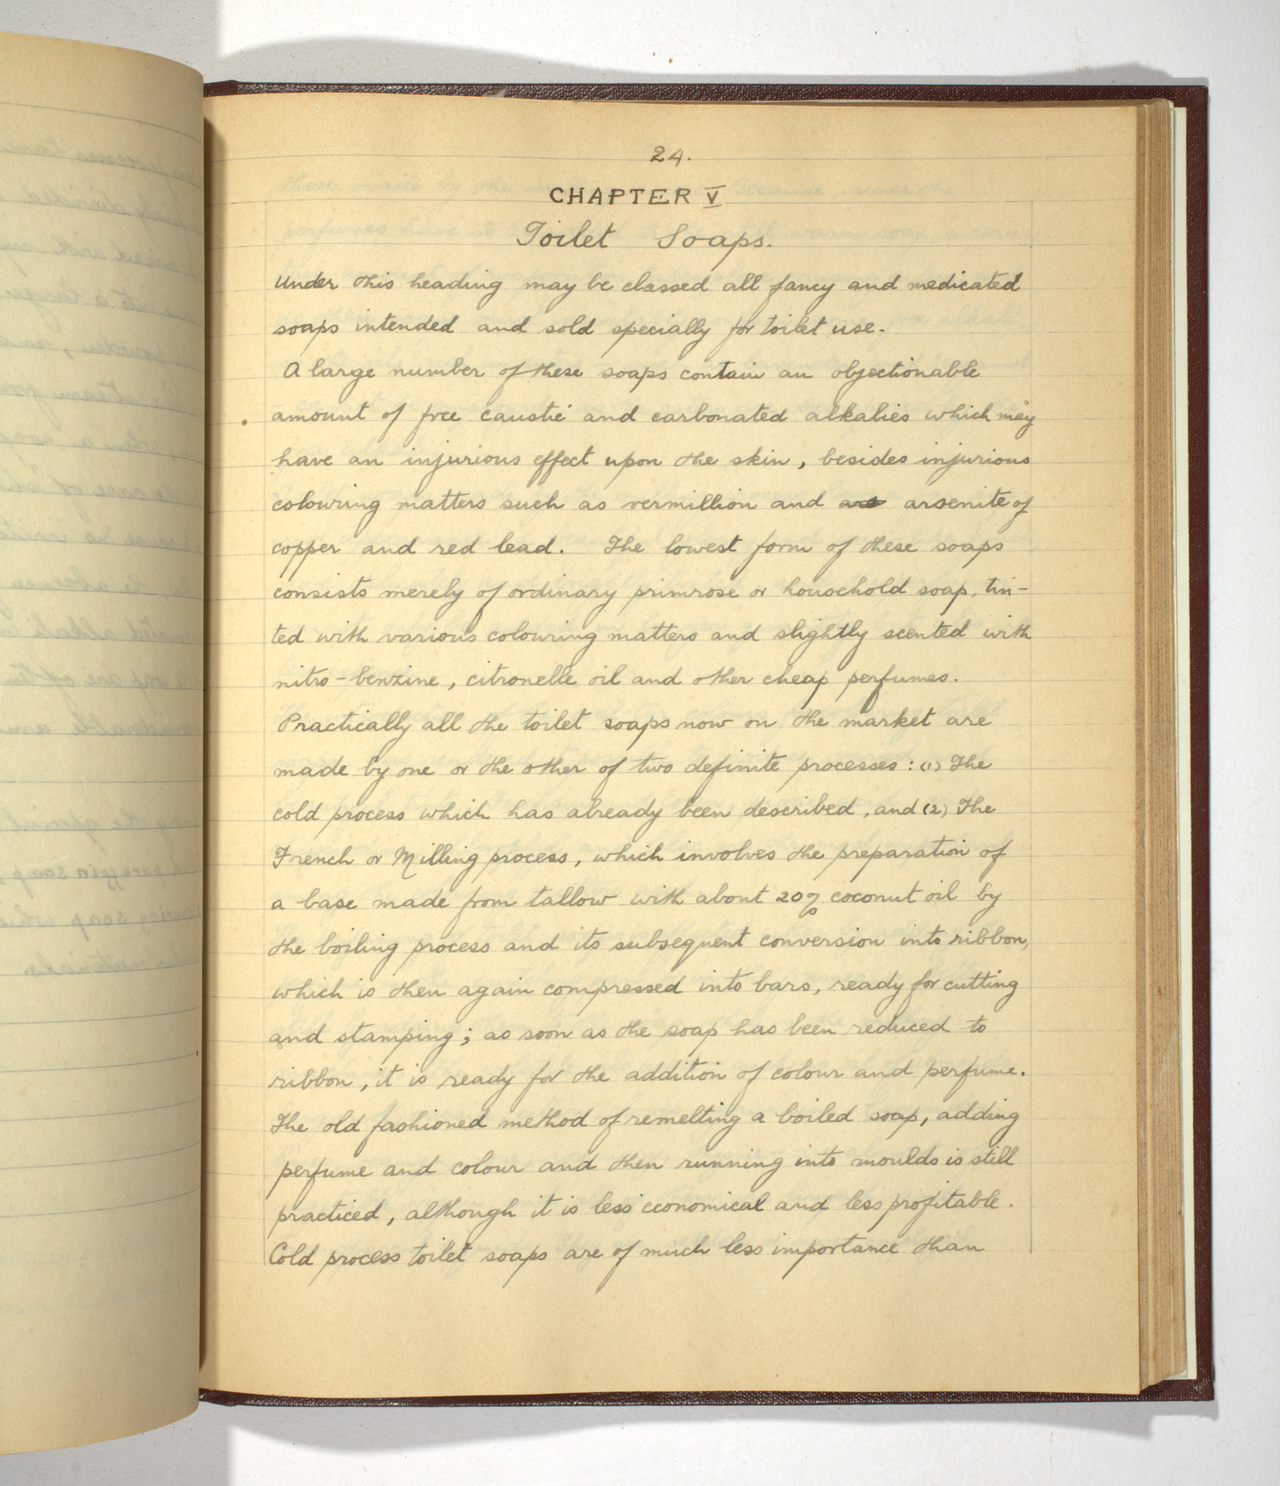 24.
CHAPTER V
Toilet Soaps.
Under this heading may be classed all fancy and medicated
soaps intended and sold specially for toilet use.
A large number of these soaps contain an objectionable
amount of free caustic and carbonated alkalies which may
have an injurious effect upon the skin, besides injurious
colouring matters such as vermillion and ars arsenite of
copper and red lead. The lowest form of these soaps
consists merely of ordinary primrose or household soap, tin-
ted with various colouring matters and slightly scented with
nitro-benzine, citronelle oil and other cheap perfumes.
Practically all the toilet soaps now on the market are
made by one or the other of two definite processes: (1) The
cold process which has already been described, and (2) The
French or Milling process, which involves the preparation of
a base made from tallow with about 20% coconut oil by
the boiling process and its subsequent conversion into ribbon,
which is then again compressed into bars, ready for cutting
and stamping; as soon as the soap has been reduced to
ribbon, it is ready for the addition of colour and perfume.
The old fashioned method of remelting a boiled soap, adding
perfume and colour and then running into moulds is still
practiced, although it is less economical and less profitable.
Cold process toilet soaps are of much less importance than